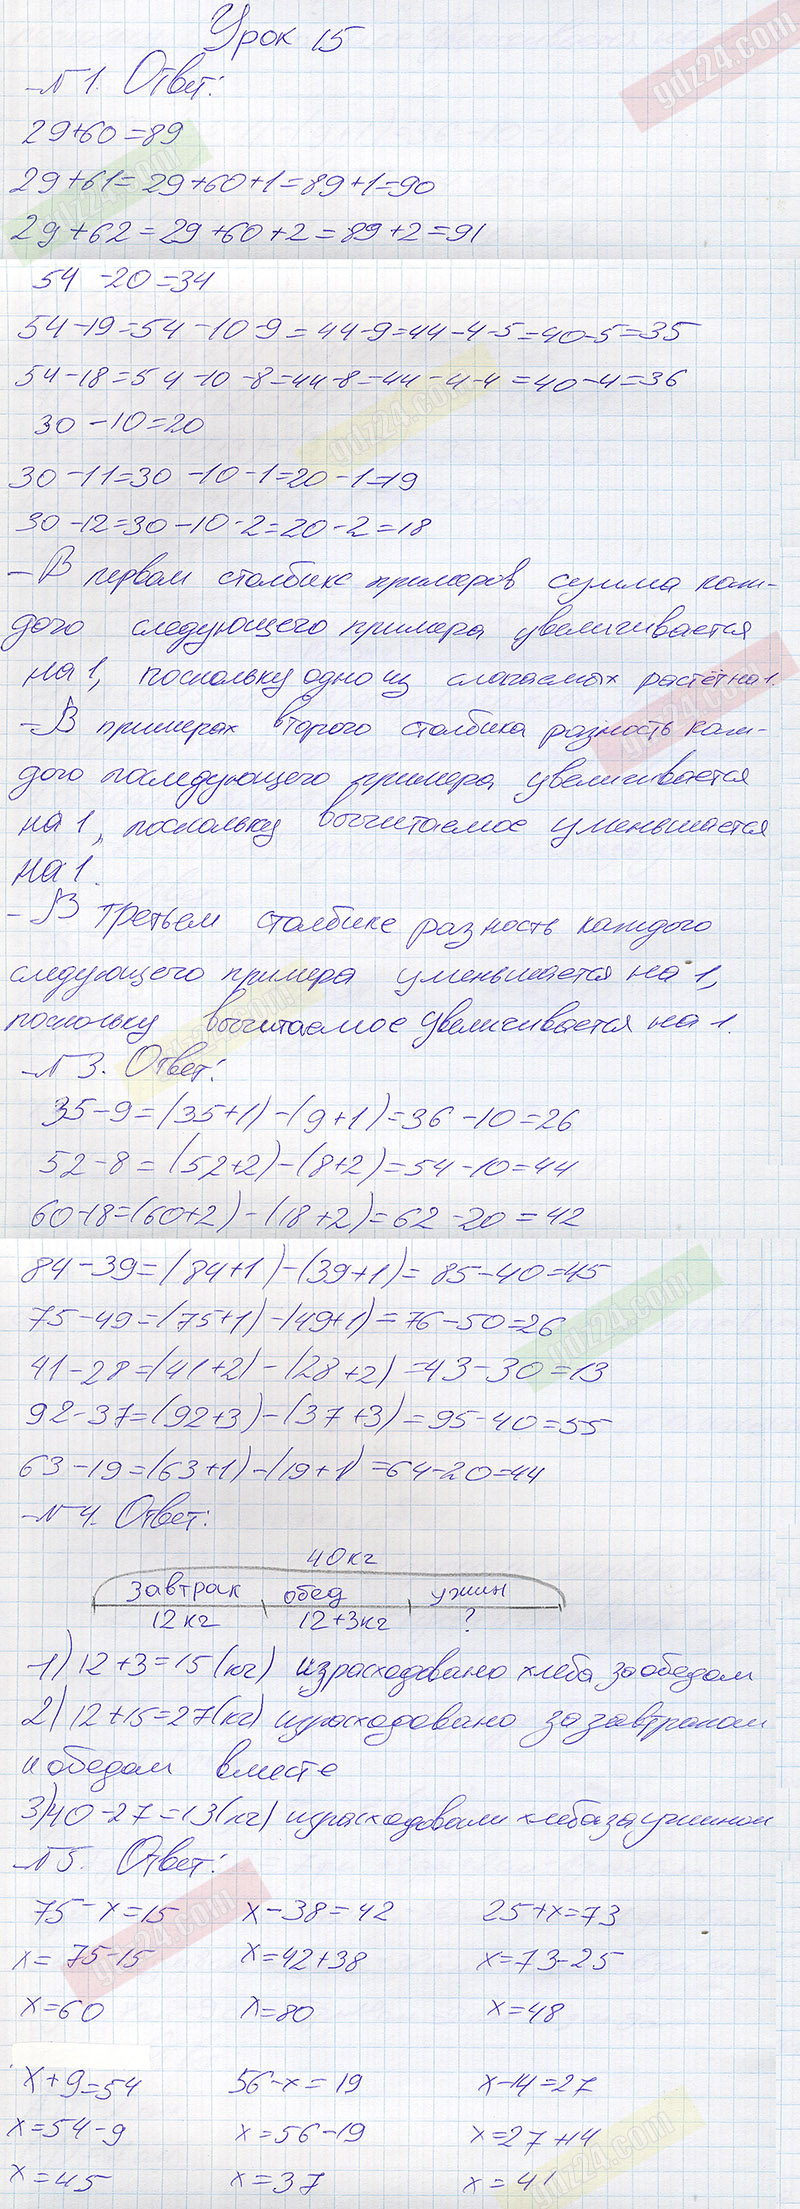 Урок 15
№1. Ответ:
29+60=89
29+61=29+60+1=89+1=90
29+62=29+60+2=89+2=91
54-20=34
54-19=54-10-9=44-9=44-4-5=40-5=35
54-18=54-10-8=44-8=44-4-4=40-4=36
30-10=20
30-11=30-10-1=20-1=19
30-12=30-10-2=20-2=18
- В первом столбике примеров сумма каж-
дого следующего примера увеличивается
на 1, поскольку одно из слагаемых растёт на 1.
- В примерах второго столбика разность каж-
дого последующего примера увеличивается
на 1, поскольку вычитаемое уменьшается
на 1.
- В третьем столбике разность каждого
следующего примера уменьшается на 1,
поскольку вычитаемое увеличивается на 1.
№3. Ответ:
35-9=(35+1)-(9+1)=36-10=26
52-8=(52+2)-(8+2)=54-10=44
60-18=(60+2)-(18+2)=62-20=42
84-39=(84+1)-(39+1)=85-40=45
75-49=(75+1)-(49+1)=76-50=26
41-28=(41+2)-(28+2)=43-30=13
92-37=(92+3)-(37+3)=95-40=55
63-19=(63+1)-(19+1)=64-20=44
№4. Ответ:
40кг
завтрак обед ужин
12кг 12+3кг ?
1) 12+3=15(кг) израсходовано хлеба за обедом
2) 12+15=27(кг) израсходовано за завтраком
и обедом вместе
3) 40-27=13(кг) израсходовали хлеба за ужином
№5. Ответ:
75-x=15 x-38=42 25+x=73
x=75-15 x=42+38 x=73-25
x=60 x=80 x=48
x+9=54 56-x=19 x-14=27
x=54-9 x=56-19 x=27+14
x=45 x=37 x=41
gdz24.com
gdz24.com
gdz24.com
gdz24.com
gdz24.com
gdz24.com
gdz24.com
gdz24.com